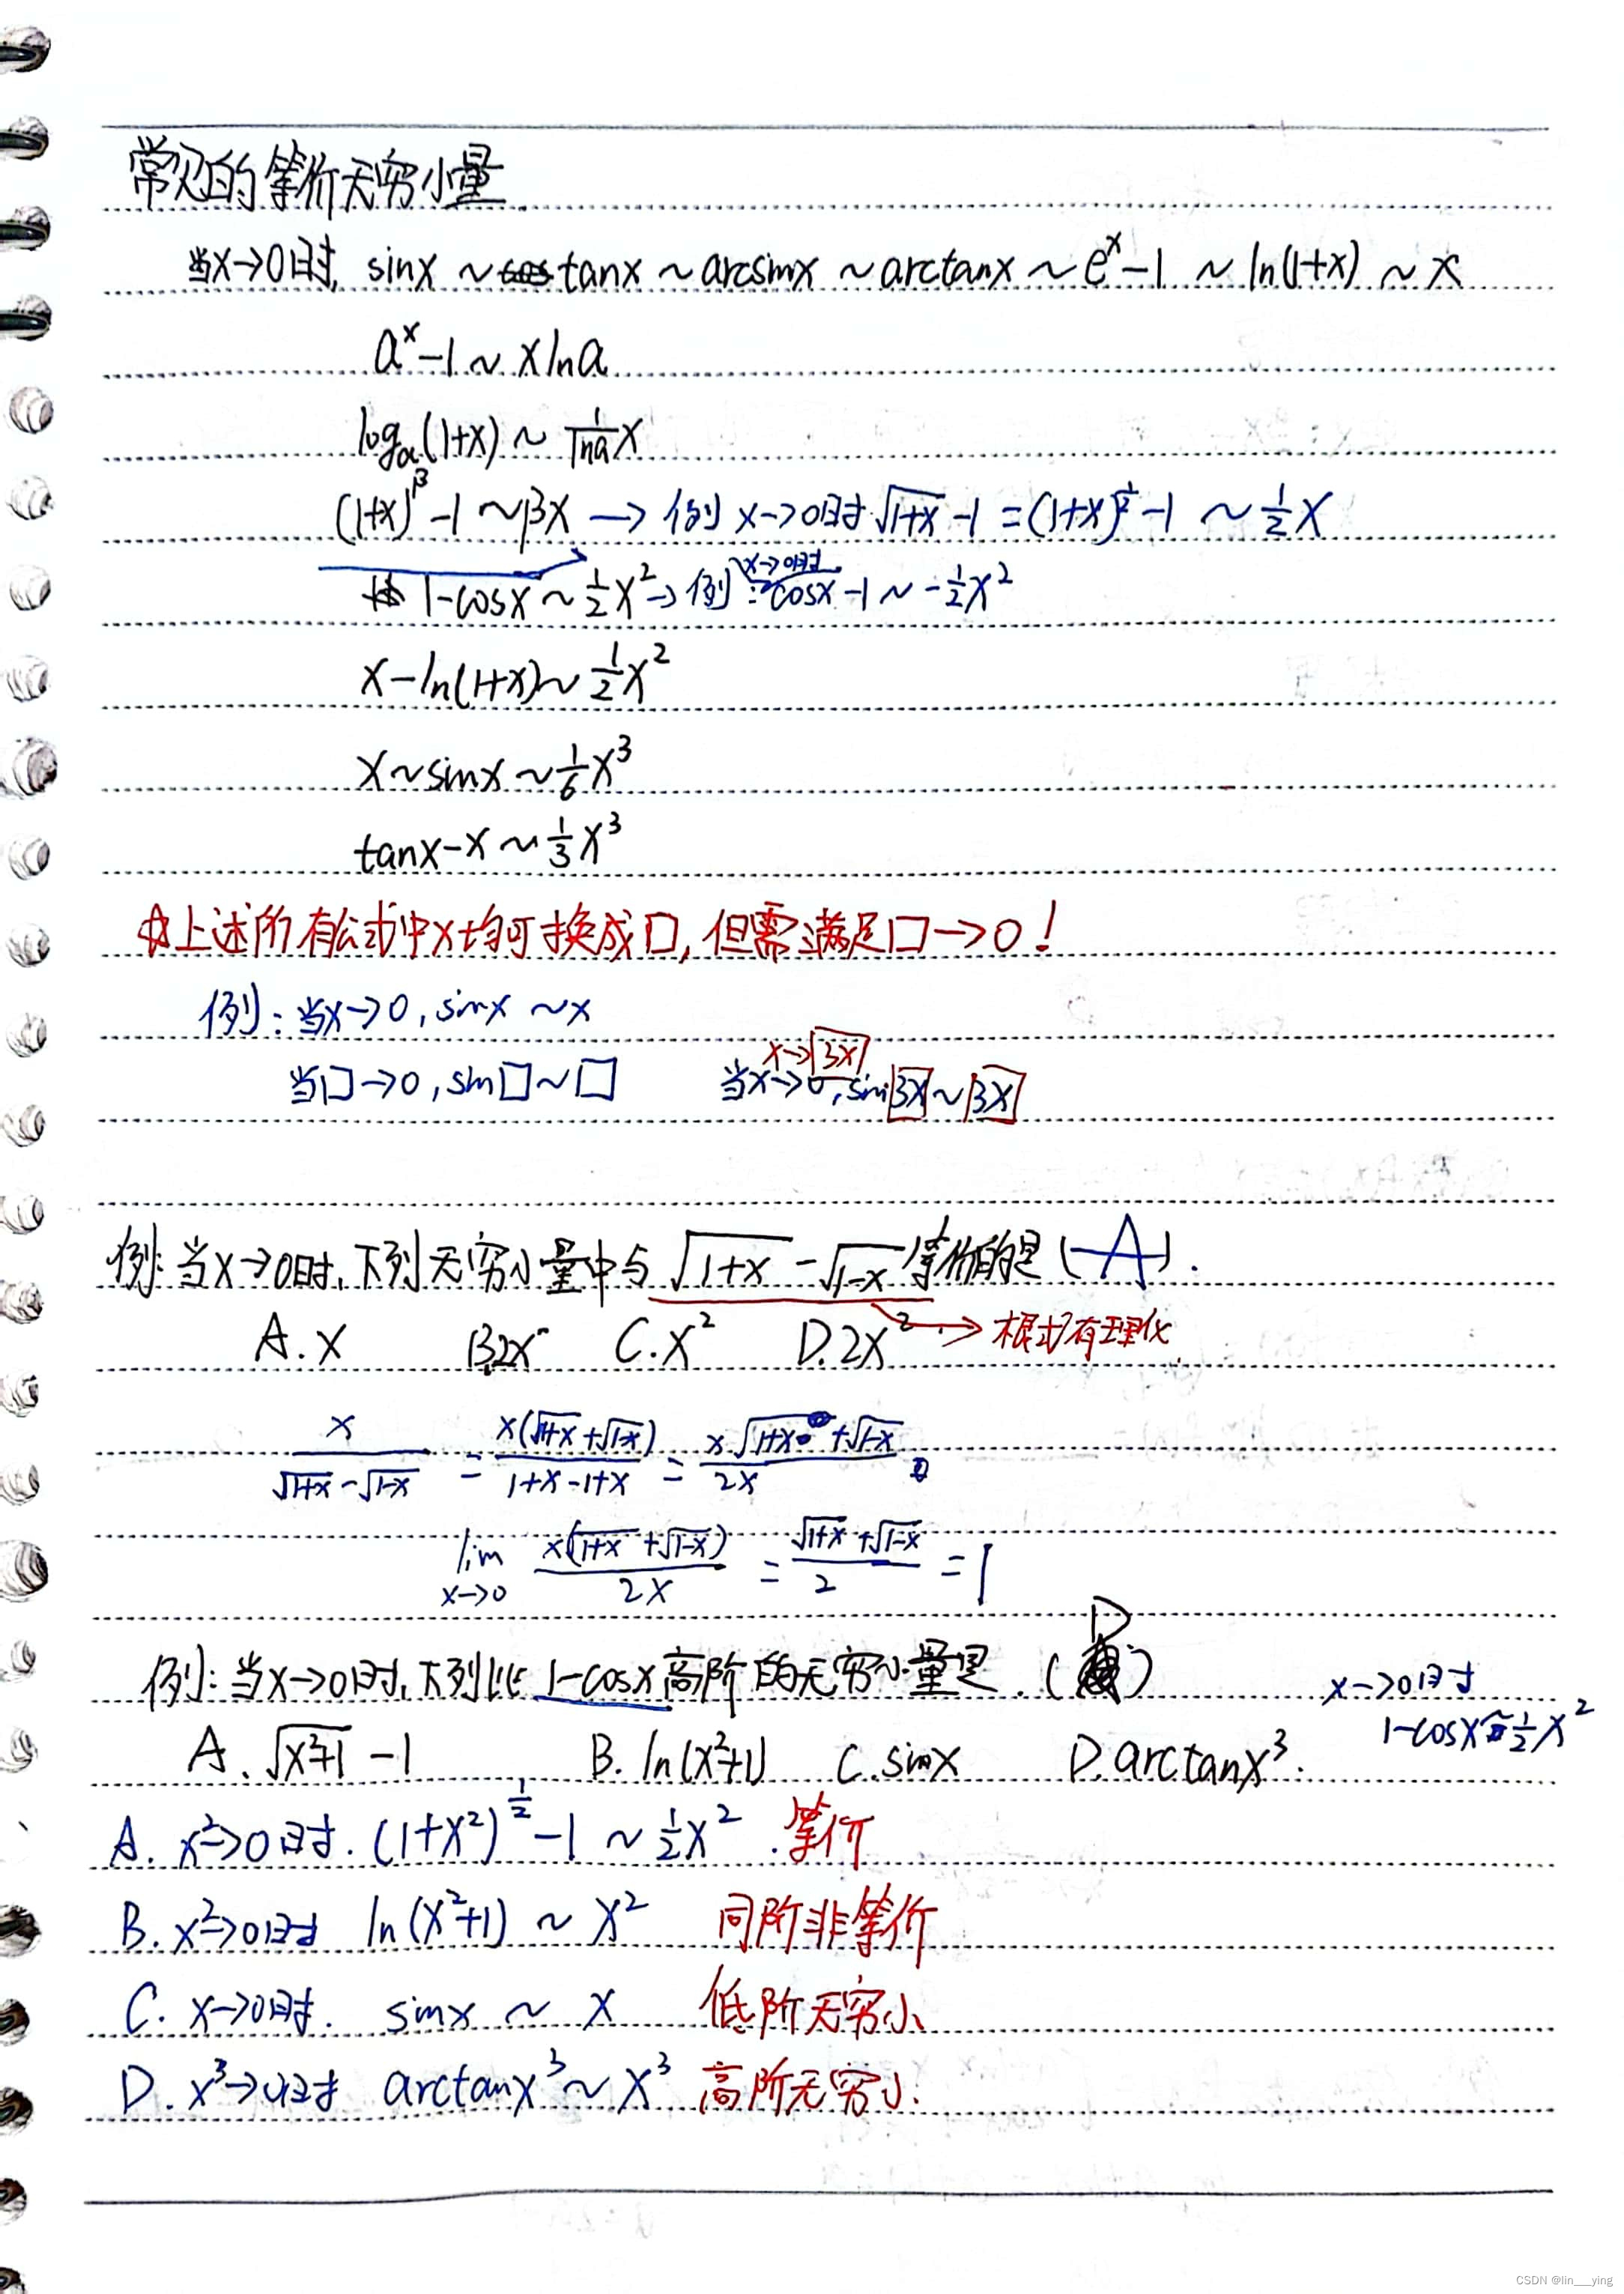 常见的等价无穷小量
当x→0时, sinx ~ tanx ~ arcsinx ~ arctanx ~ eˣ-1 ~ ln(1+x) ~ x
aˣ-1 ~ xlna
logₐ(1+x) ~ 1/lna x
(1+x)^β -1 ~ βx → 例 x→0时 √(1+x) -1 = (1+x)^(1/2) -1 ~ 1/2 x
1-cosx ~ 1/2 x² → 例: x→0时 cosx-1 ~ -1/2 x²
x-ln(1+x) ~ 1/2 x²
x~sinx ~ 1/6 x³
tanx-x ~ 1/3 x³
☆上述所有公式中x均可换成口, 但需满足口→0!
例: 当x→0, sinx ~x
当□→0, sin□~□ 当x→0, sin 3x ~ 3x
x→3x
例: 当x→0时, 下列无穷小量中与 √(1+x) - √(1-x) 等价的是 ( A ).
A. x B.2x C. x² D.2x² → 根式有理化
x/(√(1+x) - √(1-x)) = x(√(1+x) + √(1-x))/(1+x-1+x) = x √(1+x) + √(1-x)/2x
lim x→0 x(√(1+x) + √(1-x))/2x = (√(1+x) + √(1-x))/2 = 1
例: 当x→0时, 下列比 1-cosx 高阶的无穷小量是. ( D )
x→0时
1-cosx ~ 1/2 x²
A. √(x²+1) -1 B. ln(x²+1) C. sinx D. arctanx³.
A. x²→0时. (1+x²)^(1/2) -1 ~ 1/2 x². 等价
B. x²→0时 ln(x²+1) ~ x² 同阶非等价
C. x→0时. sinx ~ x 低阶无穷小
D. x³→0时 arctanx³ ~ x³ 高阶无穷小.
CSDN @lin___ying